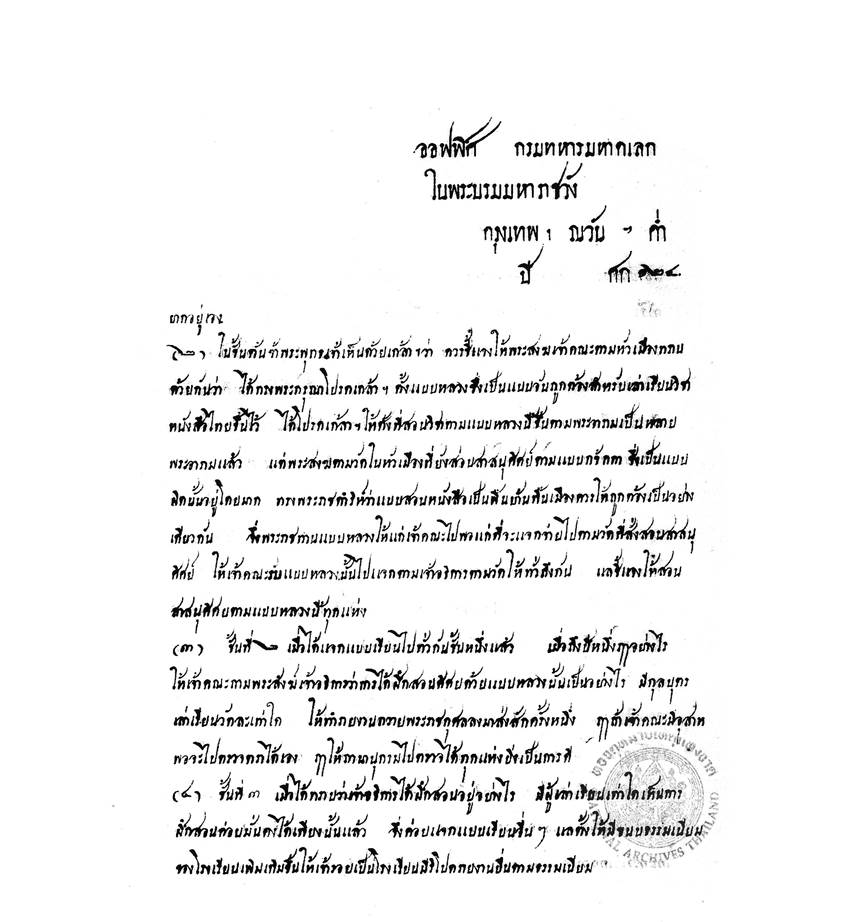 ออฟฟิศ กรมทหารมหาดเลก
ในพระบรมมหาราชวัง
กรุงเทพ ฯ ณวัน ฯ ค่ำ
ปี ศก ๑๒๔
(๒) ในชั้นต้นข้าพระพุทธเจ้าเห็นด้วยเกล้าฯว่า ควรชี้แจงให้พระสงฆเจ้าคณะตามหัวเมืองทราบ
ด้วยกันว่า ได้ทรงพระกรุณาโปรดเกล้าฯ ตั้งแบบหลวงซึ่งเป็นแบบอันถูกต้องสำหรับเล่าเรียนวิชา
หนังสือไทยขึ้นไว้ ได้โปรดเกล้าฯให้ตั้งที่สอนวิชาตามแบบหลวงนี้ขึ้นตามพระอารามเป็นหลาย
พระอารามแล้ว แต่พระสงฆตามวัดในหัวเมืองที่ยังสอนสาสนุศิศย์ตามแบบ ซึ่งเป็นแบบ
ผิดนั้นอยู่โดยมาก ทรงพระราชดำริห์ว่าแบบสอนหนังสือเป็น ควรให้ถูกต้องเป็นอย่าง
เดียวกัน จึ่งพระราชทานแบบหลวงให้แก่เจ้าคณะไปพอแก่ที่จะแจกจ่ายไปตามวัดที่สั่งสอนสาสนุ
ศิศย์ ให้เจ้าคณะรับแบบหลวงนั้นไปแจกตามเจ้าอธิการตามวัดให้ทั่วถึงกัน แลชี้แจงให้สอน
สาสนุศิศย์ตามแบบหลวงนี้ทุกแห่ง
(๓) ชั้นที่ ๒ เมื่อได้แจกแบบเรียนไปทั่วกันชั้นหนึ่งแล้ว เมื่อถึงปีหนึ่งฤๅอย่างไร
ให้เจ้าคณะถามพระสงฆ์เจ้าอธิการว่าการได้ฝึกสอนศิศย์ด้วยแบบหลวงนั้นเป็นอย่างไร มีกุลบุตร
เล่าเรียนวัดละเท่าใด ให้ทำรายงานถวายพระราชกุศลลงมาส่งสักครั้งหนึ่ง ฤๅถ้าเจ้าคณะมีอุสาห
พอจะไปตรวจตราได้เอง ฤๅให้ถานานุกรมไปตรวจได้ทุกแห่งยิ่งเป็นการดี
(๔) ชั้นที่ ๓ เมื่อได้ทราบว่าเจ้าอธิการได้ฝึกสอนอยู่อย่างไร มีผู้เล่าเรียนเท่าใดเห็นการ
ฝึกสอนค่อยมั่นคงได้เที่ยงนั้นแล้ว จึ่งค่อยแจกแบบเรียนอื่น ๆ แลตั้งให้มีขนบธรรมเนียม
ของโรงเรียนเพิ่มเติมขึ้นให้เรียบร้อยเป็นโรงเรียน รายงานยื่นตามธรรมเนียม
หอจดหมายเหตุแห่งชาติ
NATIONAL ARCHIVES THAILAND